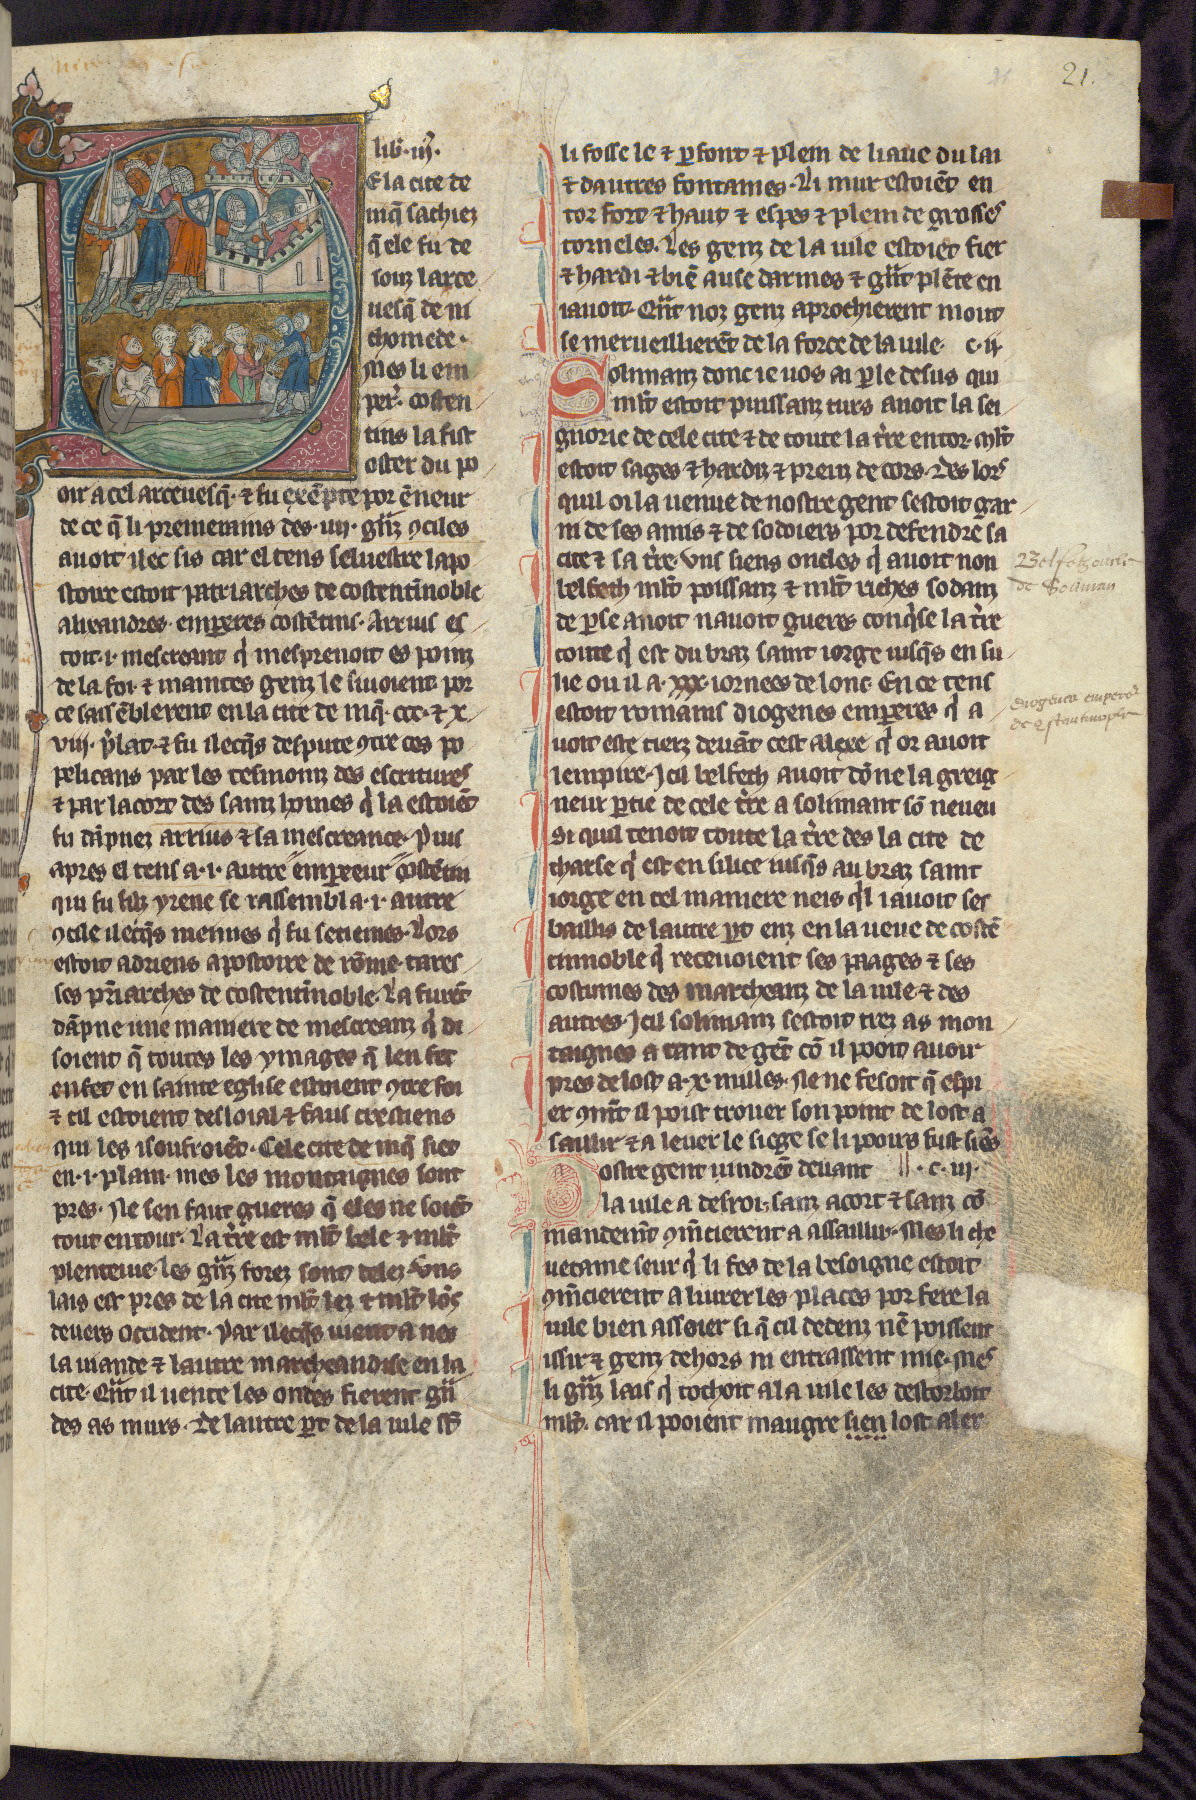 21.
lib᷑·iij᷑·
E la cite de
niq̄ sachiez
q̄ ele fu de
souz larce
uesq̄ de ni
chomede·
Mes li em
per᷑· costen
tins la fist
oster du po
oir a cel arceuesq̄· ⁊ fu exēpte por ēneur
de ce q̄ li premerains des·iiij· gnz ꝯciles
auoit ilec sis car el tens seluestre lapo
stoire estoit patriarches de costentinnoble
alixandres· emperes costētins· Arrius es
toit·i· mescreant q̇ mesprenoit es poinz
de la foi· ⁊ maintes genz le siuoient por
ce sassēblerent en la cite de niq̄· ccc· ⁊ x
viij· p̄lat· ⁊ fu ilecq̄s despute ꝯtre ces po
pelicans par les tesmoinz des escritures
⁊ par lacort des sainz homes q̇ la estoiēt
fu dāpnez arrius ⁊ sa mescreance· Puis
apres el tens a·i· autre emꝑeeur costētin
qui fu filz yrene se rassembla·i· autre
ꝯcile ilecq̄s meimes q̇ fu setiemes· Lors
estoit adriens apostoire de rōme· tares
ses pr̄iarches de costentinnoble· La furēt
dāpne une maniere de mescreanz q̇ di
soient q̄ toutes les ymages q̄ len fet
en fet en sainte eglise estoient ꝯtre foi
⁊ cil estoient desloial ⁊ faus crestiens
qui les i soufroiēt· Cele cite de niq̄ siet
en·i· plain· mes les montaignes sont
pres· Ne sen faut gueres q̄ eles ne soiēt
tout entour· La tr̄e est mlt̄ bele ⁊ mlt̄
plenteiue· les gnz forez sont delez· Uns
lais est pres de la cite mlt̄ lez ⁊ mlt̄ lōs
deuers occident· Par ilecq̄s uient a nes
la uiande ⁊ lautre marcheandise en la
cite· Qn̄t il uente les ondes fierent gn̄
des as murs· De lautre ꝑt de la uile sōt
li fosse le ⁊ ꝑfont ⁊ plein de liaue du lai
⁊ dautres fontaines· Li mur estoiēt en
tor fort ⁊ haut ⁊ espes ⁊ plein de grosses
torneles· Les genz de la uile estoiēt fier
⁊ hardi ⁊ biē ause darmes ⁊ gn̄t plēte en
iauoit· Qn̄t noz genz aprochierent mout
se merueillierēt de la force de la uile· c·ij·
Solimanz donc ie uos ai ꝑle desus qui
mlt̄ estoit puissanz turs auoit la sei
gnorie de cele cite ⁊ de toute la tr̄e entor· Mlt̄
estoit sages ⁊ hardiz ⁊ preuz de cors· Des lors
quil oi la uenue de nostre gent sestoit gar
ni de ses amis ⁊ de sodoiers por defendre sa
cite ⁊ sa tr̄e· Uns siens oncles q̇ auoit non
belfeth mlt̄ poissanz ⁊ mlt̄ riches sodanz
de ꝑse auoit nauoit gueres conq̇se la tr̄e
toute q̇ est du braz saint iorge iusq̄s en su
lie ou il a·xxx·iornees de lonc· En ce tens
estoit romanus diogenes emperes q̇ a
uoit este tierz deuāt cest alexe q̇ or auoit
lempire· Icil belfeth auoit dōne la greig
neur ꝑtie de cele tr̄e a solimant sō neueu
Si quil tenoit toute la tr̄e des la cite de
tharse q̇ est en silice iusq̄s au braz saint
iorge en tel maniere neis q̇l i auoit ses
baillis de lautre ꝑt enz en la ueue de costē
tinnoble q̇ receuoient ses paages ⁊ ses
costumes des marcheanz de la uile ⁊ des
autres· Icil solimanz sestoit trez as mon
taignes a tant de gēt cō il pooit auoir
pres de lost a·x· milles· Ne ne fesoit q̄ espi
er ꝯmt̄ il poist trouer son point de lost a
saillir ⁊ a leuer le siege se li pooirs fust siēs
Nostre gent uindrēt deuant ·c·iij·
la uile a desroi· sanz acort ⁊ sanz cō
mandemt̄ ꝯm̄cierent a assaillir· Mes li che
uetaine seur q̇ li fes de la besoigne estoit
ꝯm̄cierent a liurer les places por fere la
uile bien asseier si q̄ cil dedenz nē poissent
issir ⁊ genz dehors ni entrassent mie· Mes
li gnz lais q̇ tochoit a la uile les destorboit
mlt̄· car il pooient maugre lien lost aler
Belfet oncle
de Soliman
diogenes emperor
de ꝯstantinople